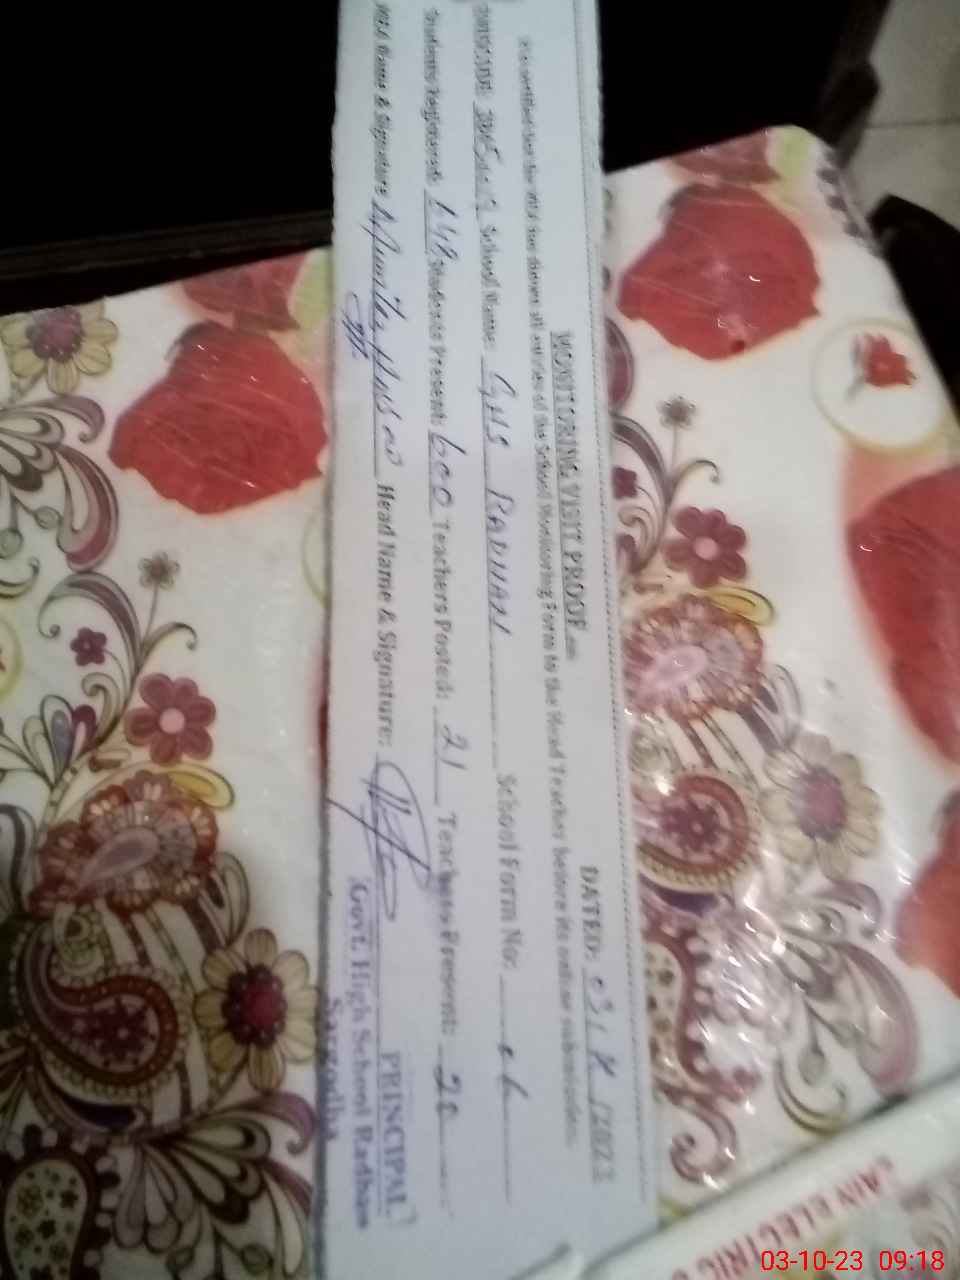 MONITORING VISIT PROOF
DATED: 03/X/2023
It is certified that the MEA has shown all entries of the School Monitoring Form to the Head Teacher before its online submission.
School Name: GHS RADHAN School Form No:
Students Registered: Students Present: 600 Teachers Posted: 21 Teachers Present: 20
MEA Name & Signature Head Name & Signature:
PRINCIPAL
Govt. High School Radhan
Sargodha
03-10-23 09:18